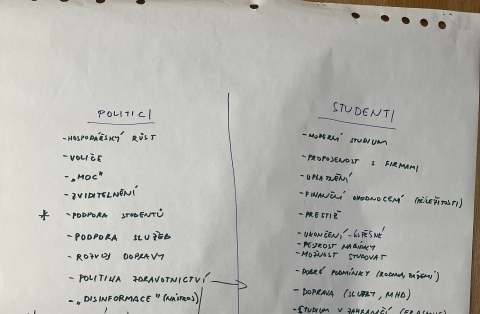 POLITICI
- HOSPODÁŘSKÝ RŮST
- VOLIČE
- „MOC“
- ZVIDITELNĚNÍ
* - PODPORA STUDENTŮ
- PODPORA SLUŽEB
- ROZVOJ DOPRAVY
- POLITIKA ZDRAVOTNICTVÍ →
- „DISINFORMACE“ (NÁSTROJ)
STUDENTI
- MODERNÍ STUDIUM
- PROPOJENOST S FIRMAMI
- UPLATNĚNÍ
- FINANČNÍ OHODNOCENÍ (PŘÍLEŽITOSTI)
- PRESTIŽ
- UKONČENÍ - ÚSPĚŠNÉ
- PESTROST NABÍDKY
- MOŽNOST STUDOVAT
- DOBRÉ PODMÍNKY (RODINA, ZÁZEMÍ)
- DOPRAVA (SLUŽBY, MHD)
- STUDIUM V ZAHRANIČÍ (ERASMUS)